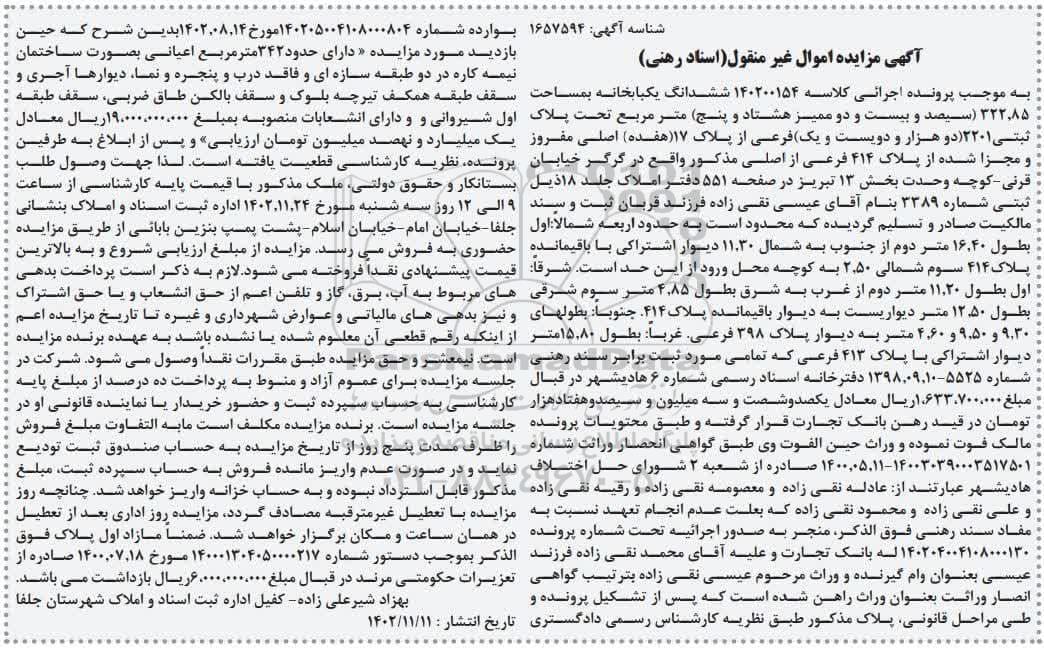 شناسه آگهی: ۱۶۵۷۵۹۴
آگهی مزایده اموال غیر منقول(اسناد رهنی)
به موجب پرونده اجرائی کلاسه ۱۴۰۲۰۰۱۵۴ ششدانگ یکبابخانه بمساحت
۳۲۲,۸۵ (سیصد و بیست و دو ممیز هشتاد و پنج) متر مربع تحت پلاک
ثبتی۲۲۰۱(دو هزار و دویست و یک)فرعی از پلاک ۱۷(هفده) اصلی مفروز
و مجزا شده از پلاک ۴۱۴ فرعی از اصلی مذکور واقع در گرگر خیابان
قرنی-کوچه وحدت بخش ۱۳ تبریز در صفحه ۵۵۱ دفتر املاک جلد ۱۸ذیل
ثبتی شماره ۳۳۸۹ بنام آقای عیسی نقی زاده فرزند قربان ثبت و سند
مالکیت صادر و تسلیم گردیده که محدود است به حدود اربعه شمالاً:اول
بطول ۱۶,۴۰ متر دوم از جنوب به شمال ۱۱,۳۰ دیوار اشتراکی با باقیمانده
پلاک۴۱۴ سوم شمالی ۲,۵۰ به کوچه محل ورود از این حد است. شرقاً:
اول بطول ۱۱,۲۰ متر دوم از غرب به شرق بطول ۴,۸۵ متر سوم شرقی
بطول ۱۲,۵۰ متر دیواریست به دیوار باقیمانده پلاک۴۱۴. جنوباً: بطولهای
۹,۳۰ و ۹,۵۰ و ۴,۶۰ متر به دیوار پلاک ۳۹۸ فرعی. غرباً: بطول ۱۵,۸۰متر
دیوار اشتراکی با پلاک ۴۱۳ فرعی که تمامی مورد ثبت برابر سند رهنی
شماره ۵۵۲۵-۱۳۹۸,۰۹,۱۰ دفترخانه اسناد رسمی شماره ۶ هادیشهر در قبال
مبلغ۱,۶۳۳,۷۰۰,۰۰۰ریال معادل یکصدوشصت و سه میلیون و سیصدوهفتادهزار
تومان در قید رهن بانک تجارت قرار گرفته و طبق محتویات پرونده
مالک فوت نموده و وراث حین الفوت وی طبق گواهی انحصار وراثت شماره
۱۴۰۰۳۰۳۹۰۰۰۳۵۱۷۵۰۱-۱۴۰۰,۰۵,۱۱ صادره از شعبه ۲ شورای حل اختلاف
هادیشهر عبارتند از: عادله نقی زاده و معصومه نقی زاده و رقیه نقی زاده
و علی نقی زاده و محمود نقی زاده که بعلت عدم انجام تعهد نسبت به
مفاد سند رهنی فوق الذکر، منجر به صدور اجرائیه تحت شماره پرونده
۱۴۰۲۰۴۰۰۴۱۰۸۰۰۰۱۳۰ له بانک تجارت و علیه آقای محمد نقی زاده فرزند
عیسی بعنوان وام گیرنده و وراث مرحوم عیسی نقی زاده بترتیب گواهی
انصار وراثت بعنوان وراث راهن شده است که پس از تشکیل پرونده و
طی مراحل قانونی، پلاک مذکور طبق نظریه کارشناس رسمی دادگستری
بوارده شماره ۱۴۰۲۰۵۰۰۴۱۰۸۰۰۰۸۰۴مورخ۱۴۰۲,۰۸,۱۴بدین شرح که حین
بازدید مورد مزایده « دارای حدود۳۴۲مترمربع اعیانی بصورت ساختمان
نیمه کاره در دو طبقه سازه ای و فاقد درب و پنجره و نما، دیوارها آجری و
سقف طبقه همکف تیرچه بلوک و سقف بالکن طاق ضربی، سقف طبقه
اول شیروانی و و دارای انشعابات منصوبه بمبلغ ۱۹,۰۰۰,۰۰۰,۰۰۰ریال معادل
یک میلیارد و نهصد میلیون تومان ارزیابی» و پس از ابلاغ به طرفین
پرونده، نظریه کارشناسی قطعیت یافته است. لذا جهت وصول طلب
بستانکار و حقوق دولتی، ملک مذکور با قیمت پایه کارشناسی از ساعت
۹ الی ۱۲ روز سه شنبه مورخ ۱۴۰۲,۱۱,۲۴ اداره ثبت اسناد و املاک بنشانی
جلفا-خیابان امام-خیابان اسلام-پشت پمپ بنزین بابائی از طریق مزایده
حضوری به فروش می رسد. مزایده از مبلغ ارزیابی شروع و به بالاترین
قیمت پیشنهادی نقداً فروخته می شود.لازم به ذکر است پرداخت بدهی
های مربوط به آب، برق، گاز و تلفن اعم از حق انشعاب و یا حق اشتراک
و نیز بدهی های مالیاتی و عوارض شهرداری و غیره تا تاریخ مزایده اعم
از اینکه رقم قطعی آن معلوم شده یا نشده باشد به عهده برنده مزایده
است. نیمعشر و حق مزایده طبق مقررات نقداً وصول می شود. شرکت در
جلسه مزایده برای عموم آزاد و منوط به پرداخت ده درصد از مبلغ پایه
کارشناسی به حساب سپرده ثبت و حضور خریدار یا نماینده قانونی او در
جلسه مزایده است. برنده مزایده مکلف است مابه التفاوت مبلغ فروش
را ظرف مدت پنج روز از تاریخ مزایده به حساب صندوق ثبت تودیع
نماید و در صورت عدم واریز مانده فروش به حساب سپرده ثبت، مبلغ
مذکور قابل استرداد نبوده و به حساب خزانه واریز خواهد شد. چنانچه روز
مزایده با تعطیل غیرمترقبه مصادف گردد، مزایده روز اداری بعد از تعطیل
در همان ساعت و مکان برگزار خواهد شد. ضمناً مازاد اول پلاک فوق
الذکر بموجب دستور شماره ۱۴۰۰۰۱۳۰۴۰۵۰۰۰۰۲۱۷ مورخ ۱۴۰۰,۰۷,۱۸ صادره از
تعزیرات حکومتی مرند در قبال مبلغ۶,۰۰۰,۰۰۰,۰۰۰ریال بازداشت می باشد.
بهزاد شیرعلی زاده- کفیل اداره ثبت اسناد و املاک شهرستان جلفا
تاریخ انتشار : ۱۴۰۲/۱۱/۱۱
ParsNamadData
۰۲۱-۸۸۳۴۹۶۷۰-۵